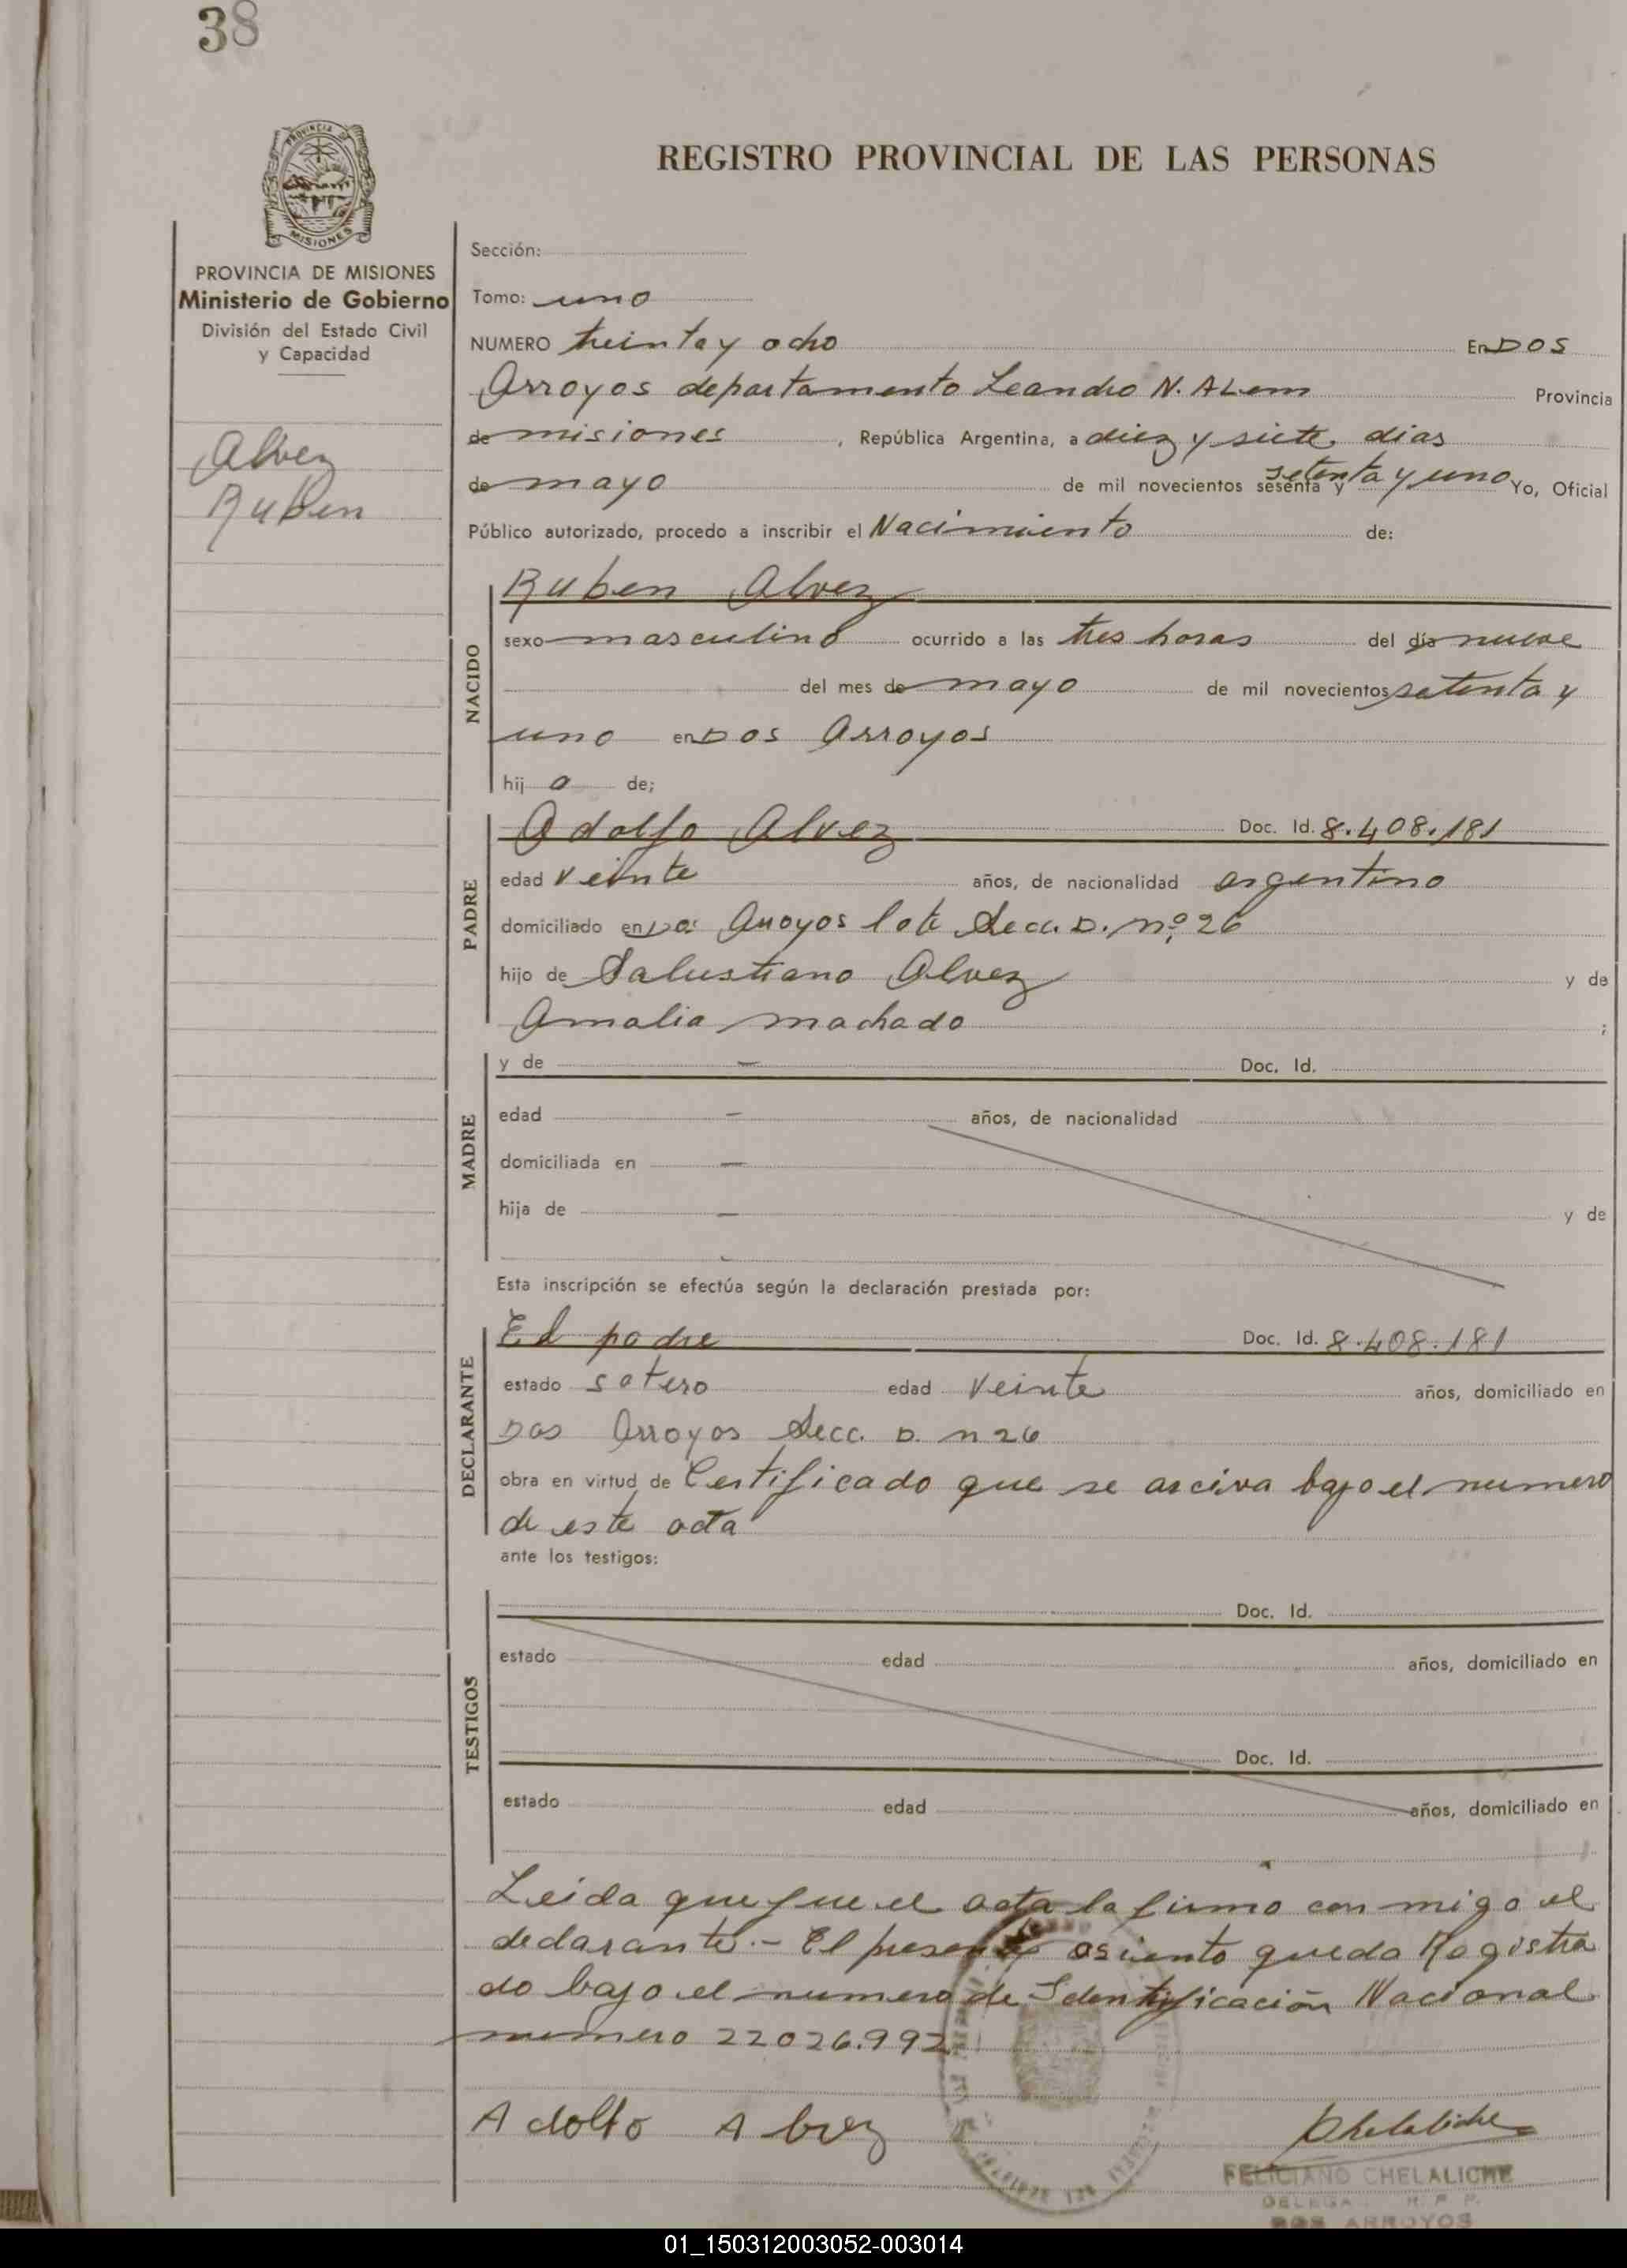 38
REGISTRO PROVINCIAL DE LAS PERSONAS
PROVINCIA DE MISIONES
Ministerio de Gobierno
División del Estado Civil
y Capacidad
Alvez
Ruben
Sección:
Tomo: uno
NUMERO treinta y ocho En DOS
Arroyos departamento Leandro N. ALem Provincia
de misiones, República Argentina, a diez y siete dias
de mayo de mil novecientos sesenta y setenta y uno Yo, Oficial
Público autorizado, procedo a inscribir el Nacimiento de:
NACIDO
Ruben Alvez
sexo masculino ocurrido a las tres horas del día nueve
del mes de mayo de mil novecientos setenta y
uno en DOS Arroyos
hij o de;
PADRE
Adolfo Alvez Doc. Id. 8.408.181
edad veinte años, de nacionalidad argentino
domiciliado en Dos Arroyos lote Secc. D. nº 26
hijo de Salustiano Alvez y de
Amalia machado ;
MADRE
y de — Doc. Id.
edad — años, de nacionalidad
domiciliada en —
hija de — y de
Esta inscripción se efectúa según la declaración prestada por:
DECLARANTE
El padre Doc. Id. 8.408.181
estado sotero edad veinte años, domiciliado en
Dos Arroyos Secc. D. n 26
obra en virtud de Certificado que se arciva bajo el numero
de este acta
ante los testigos:
TESTIGOS
Doc. Id.
estado edad años, domiciliado en
Doc. Id.
estado edad años, domiciliado en
Leida que fue el acta la firmo con migo el
declarante.- El presente asiento queda Registra
do bajo el numero de Identificación Nacional
numero 22026.992
Adolfo Alvez
Chelaliche
FELICIANO CHELALICHE
DELEGA R. P. P.
DOS ARROYOS
01_150312003052-003014